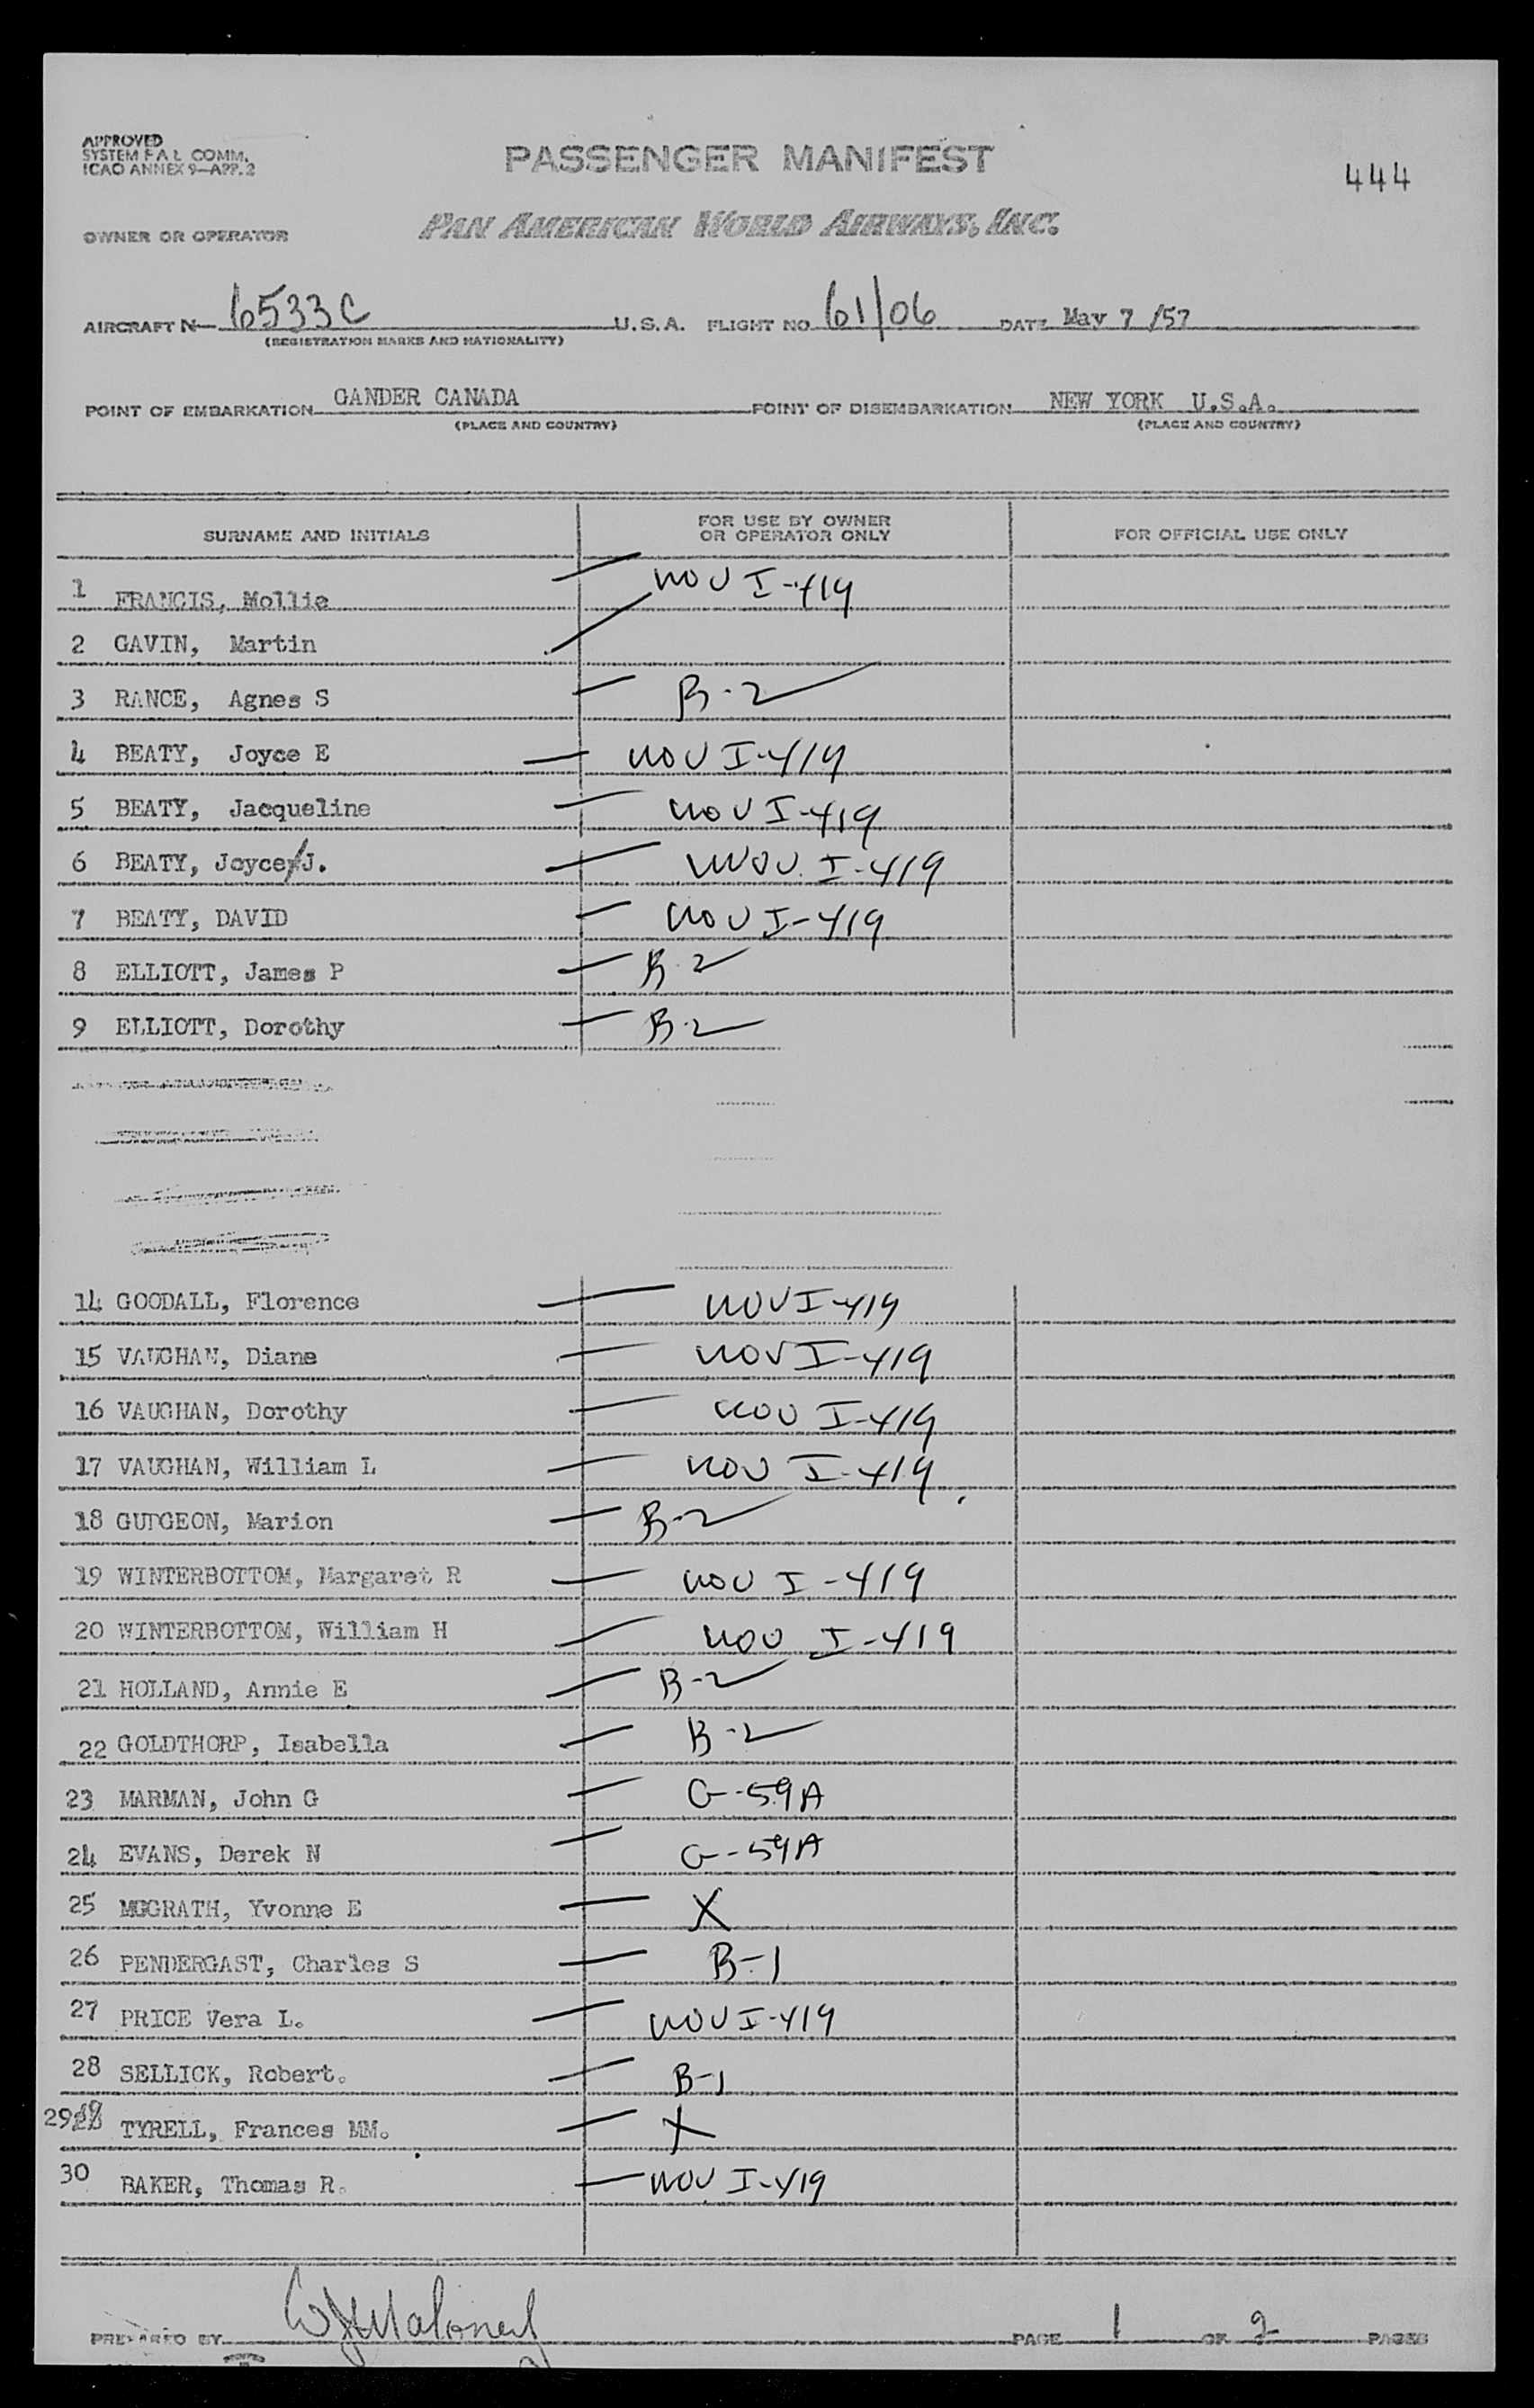 APPROVED
SYSTEM F A L COMM.
ICAO ANNEX 9—APP. 2
PASSENGER MANIFEST
444
OWNER OR OPERATOR PAN AMERICAN WORLD AIRWAYS, INC.
AIRCRAFT N— 6533C U.S.A. FLIGHT NO 61/06 DATE May 7 /57
(REGISTRATION MARKS AND NATIONALITY)
POINT OF EMBARKATION GANDER CANADA POINT OF DISEMBARKATION NEW YORK U.S.A.
(PLACE AND COUNTRY) (PLACE AND COUNTRY)
SURNAME AND INITIALS FOR USE BY OWNER OR OPERATOR ONLY FOR OFFICIAL USE ONLY
1 FRANCIS, Mollie nov I-419
2 GAVIN, Martin
3 RANCE, Agnes S B-2
4 BEATY, Joyce E nov I-419
5 BEATY, Jacqueline nov I-419
6 BEATY, Joyce J. nov. I-419
7 BEATY, DAVID nov I-419
8 ELLIOTT, James P B-2
9 ELLIOTT, Dorothy B-2
14 GOODALL, Florence nov I-419
15 VAUGHAN, Diane nov I-419
16 VAUGHAN, Dorothy nov I-419
17 VAUGHAN, William L nov I-419
18 GUDGEON, Marion B-2
19 WINTERBOTTOM, Margaret R nov I-419
20 WINTERBOTTOM, William H nov I-419
21 HOLLAND, Annie E B-2
22 GOLDTHORP, Isabella B-2
23 MARMAN, John G G-59A
24 EVANS, Derek N G-59A
25 MCGRATH, Yvonne E X
26 PENDERGAST, Charles S B-1
27 PRICE Vera L. nov I-419
28 SELLICK, Robert. B-1
29 TYRELL, Frances MM. X
30 BAKER, Thomas R. nov I-419
PREPARED BY WJ Maloney PAGE 1 OF 2 PAGES